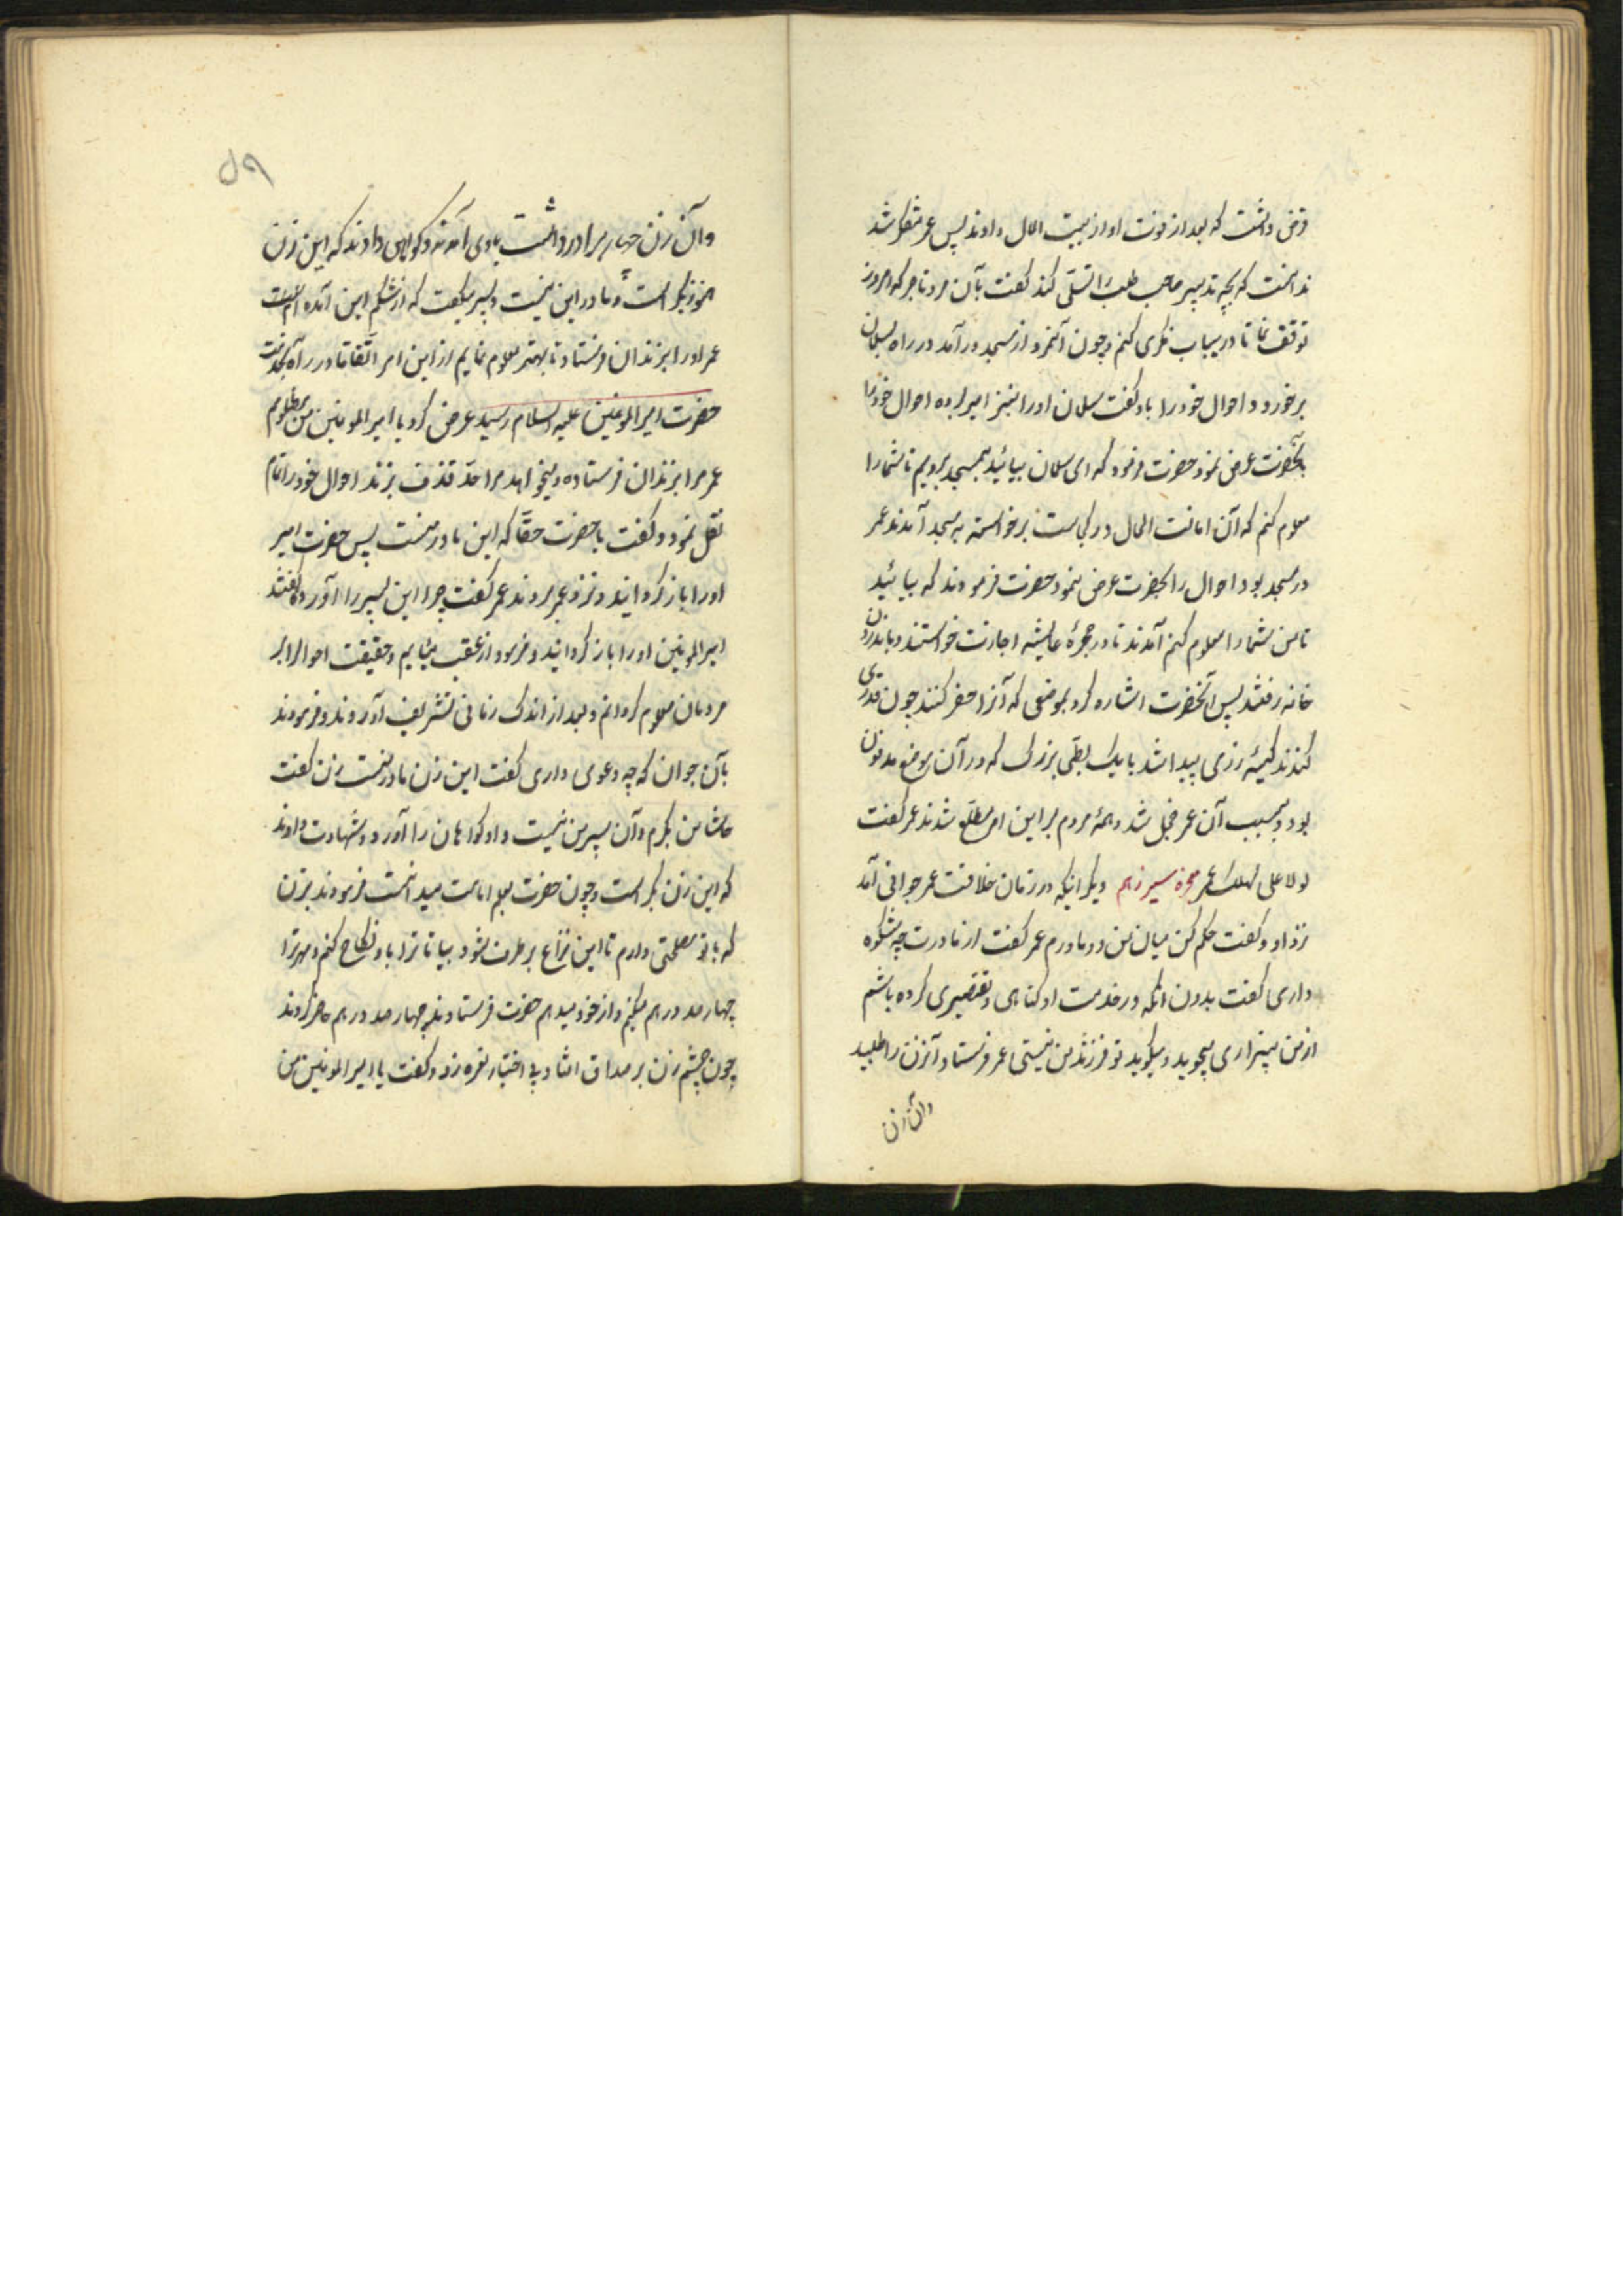 قرض داشت که بعد از فوت او از بیت المال دادند پس عمر متفکر شد
ندانست که بچه تدبیر صاحب طلب را تسلی کند گفت بآن مرد تاجر که امروز
توقف نما تا درینباب فکری کنم و چون آنمرد از مسجد درآمد در راه بسلمان
برخورد و احوال خود را باو گفت سلمان او را نیز امیر برده احوال خود را
بآنحضرت عرض نمود حضرت فرمود که ای سلمان بیائید بمسجد برویم تا شما را
معلوم کنم که آن امانت الحال در کجاست برخواسته به مسجد آمدند عمر
در مسجد بود احوال را بحضرت عرض نمود حضرت فرمودند که بیائید
تا من شما را معلوم کنم آمدند تا در حجرهٔ عایشه اجازت خواستند و باندرون
خانه رفتند پس آنحضرت اشاره کرد بموضعی که آنرا حفر کنند چون قدری
کندند کیسهٔ زری پیدا شد با یک بطی بزرگ که در آن موضع مدفون
بود و بسبب آن عمر خجل شد و همهٔ مردم بر این امر مطلع شدند عمر گفت
لولا علی لهلک عمر معجزه سیزدهم دیگر انیکه در زمان خلافت عمر جوانی آمد
نزد او و گفت حکم کن میان من و مادرم عمر گفت از مادرت چه شکوه
داری گفت بدون انکه در خدمت او گناهی و تقصیری کرده باشم
از من بیزاری میجوید و میگوید تو فرزند من نیستی عمر فرستاد و آنزن را طلبید
وآن زن
۵۹
و آن زن چهار برادر داشت با وی آمدند و گواهی دادند که این زن
هنوز بکر است و مادر این نیست و پسر میگفت که از شکم این آمده ام
عمر او را بزندان فرستاد تا بهتر معلوم نمایم از این امر اتفاقا در راه بخدمت
حضرت امیرالمومنین علیه السلام رسید عرض کرد یا امیرالمومنین من مظلوم
عمر مرا بزندان فرستاده و میخواهد مرا حد قذف بزند احوال خود را تمام
نقل نمود و گفت یا حضرت حقا که این مادر منست پس حضرت امیر
او را باز گردانید و نزد عمر بردند عمر گفت چرا این پسر را آورده گفتند
امیرالمومنین او را باز گردانید و فرمود از عقب میایم و حقیقت احوال را بر
مردمان معلوم گردانم و بعد از اندک زمانی تشریف آوردند و فرمودند
بآن جوان که چه دعوی داری گفت این زن مادر منست زن گفت
حاشا من بکرم و آن پسر من نیست و او گواهان را آورد و شهادت دادند
که این زن بکر است و چون حضرت بعلم امامت میدانست فرمودند بزن
که با تو مصلحتی دارم تا این نزاع بر طرف شود بیا تا ترا باو نکاح کنم و مهر ترا
چهار صد درهم میکنم و از خود میدهم حضرت فرستادند چهار صد درهم حاضر کردند
چون چشم زن بر صداق افتاد بی اختیار نعره زد و گفت یا امیرالمومنین من